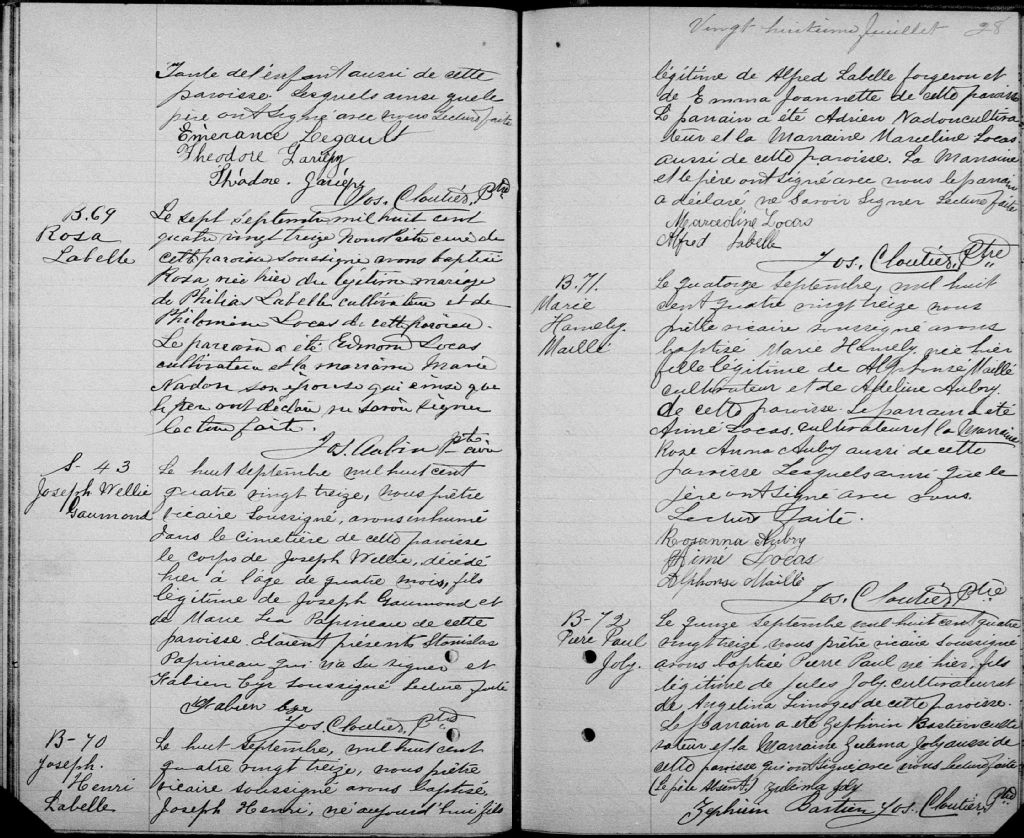 Tante de l'enfant aussi de cette
paroisse. Lesquels ainsi que le
père ont signé avec nous Lecture faite
Emérance Legault
Theodore Gariépy
Théodore. Gariépy
Jos. Cloutier, Ptre
B. 69
Rosa
Labelle
Le sept septembre mil huit cent
quatre vingt treize Nous Ptre curé de
cette paroisse soussigné avons baptisé
Rosa née hier du légitime mariage
de Philias Labelle cultivateur et de
Philomène Locas de cette paroisse.
Le parrain a été Edmond Locas
cultivateur et la marraine Marie
Nadon son épouse qui ainsi que
le père ont déclaré ne savoir signer
lecture faite.
Jos. Aubin Ptre curé
S- 43
Joseph Wellie
Gaumond
Le huit septembre mil huit cent
quatre vingt treize, nous prêtre
vicaire soussigné, avons inhumé
dans le cimetière de cette paroisse
le corps de Joseph Wellie, décédé
hier à l'âge de quatre mois, fils
légitime de Joseph Gaumond et
de Marie Lea Papineau de cette
paroisse. Etaient présents Stanislas
Papineau qui n'a su signer et
Fabien Cyr soussigné Lecture faite
Fabien Cyr
Jos. Cloutier, Ptre
B- 70
Joseph.
Henri
Labelle
Le huit Septembre, mil huit cent
quatre vingt treize, nous prêtre
vicaire soussigné avons baptisé,
Joseph Henri, né aujourd'hui fils
Vingt huitième feuillet 28
légitime de Alfred Labelle forgeron et
de Emma Joannette de cette paroisse
Le parrain a été Adrien Nadon cultiva
teur et la Marraine Marceline Locas
aussi de cette paroisse. La Marraine
et le père ont signé avec nous le parrain
a déclaré ne Savoir Signer Lecture faite
Marcedline Locas
Alfred Labelle
Jos. Cloutier, Ptre
B. 71.
Marie
Hamely.
Maillé
Le quatorze Septembre, mil huit
cent quatre vingt treize nous
prêtre vicaire soussigné avons
baptisé Marie Hamely, née hier
fille légitime de Alphonse Maillé
cultivateur et de Adeline Aubry
de cette paroisse. Le parrain a été
Aimé Locas, cultivateur et la Marraine
Rose Anna Auby aussi de cette
paroisse Lesquels ainsi que le
père ont signé avec nous.
Lecture faite.
Rosanna Aubry
Aimé Locas
Alphonse Maillé
Jos. Cloutier, Ptre
B- 72
Pierre Paul
Joly.
Le quinze septembre mil huit cent quatre
vingt treize, nous prêtre vicaire soussigné
avons baptisé Pierre Paul né hier, fils
légitime de Jules Joly, cultivateur et
de Angelina Limoges de cette paroisse.
Le parrain a été Zephirin Bastien culti
vateur et la Marraine Zulema Joly aussi de
cette paroisse qui ont signé avec nous lecture faite
(Le père Absent). Zulema Joly
Zephirin Bastien Jos. Cloutier, Ptre